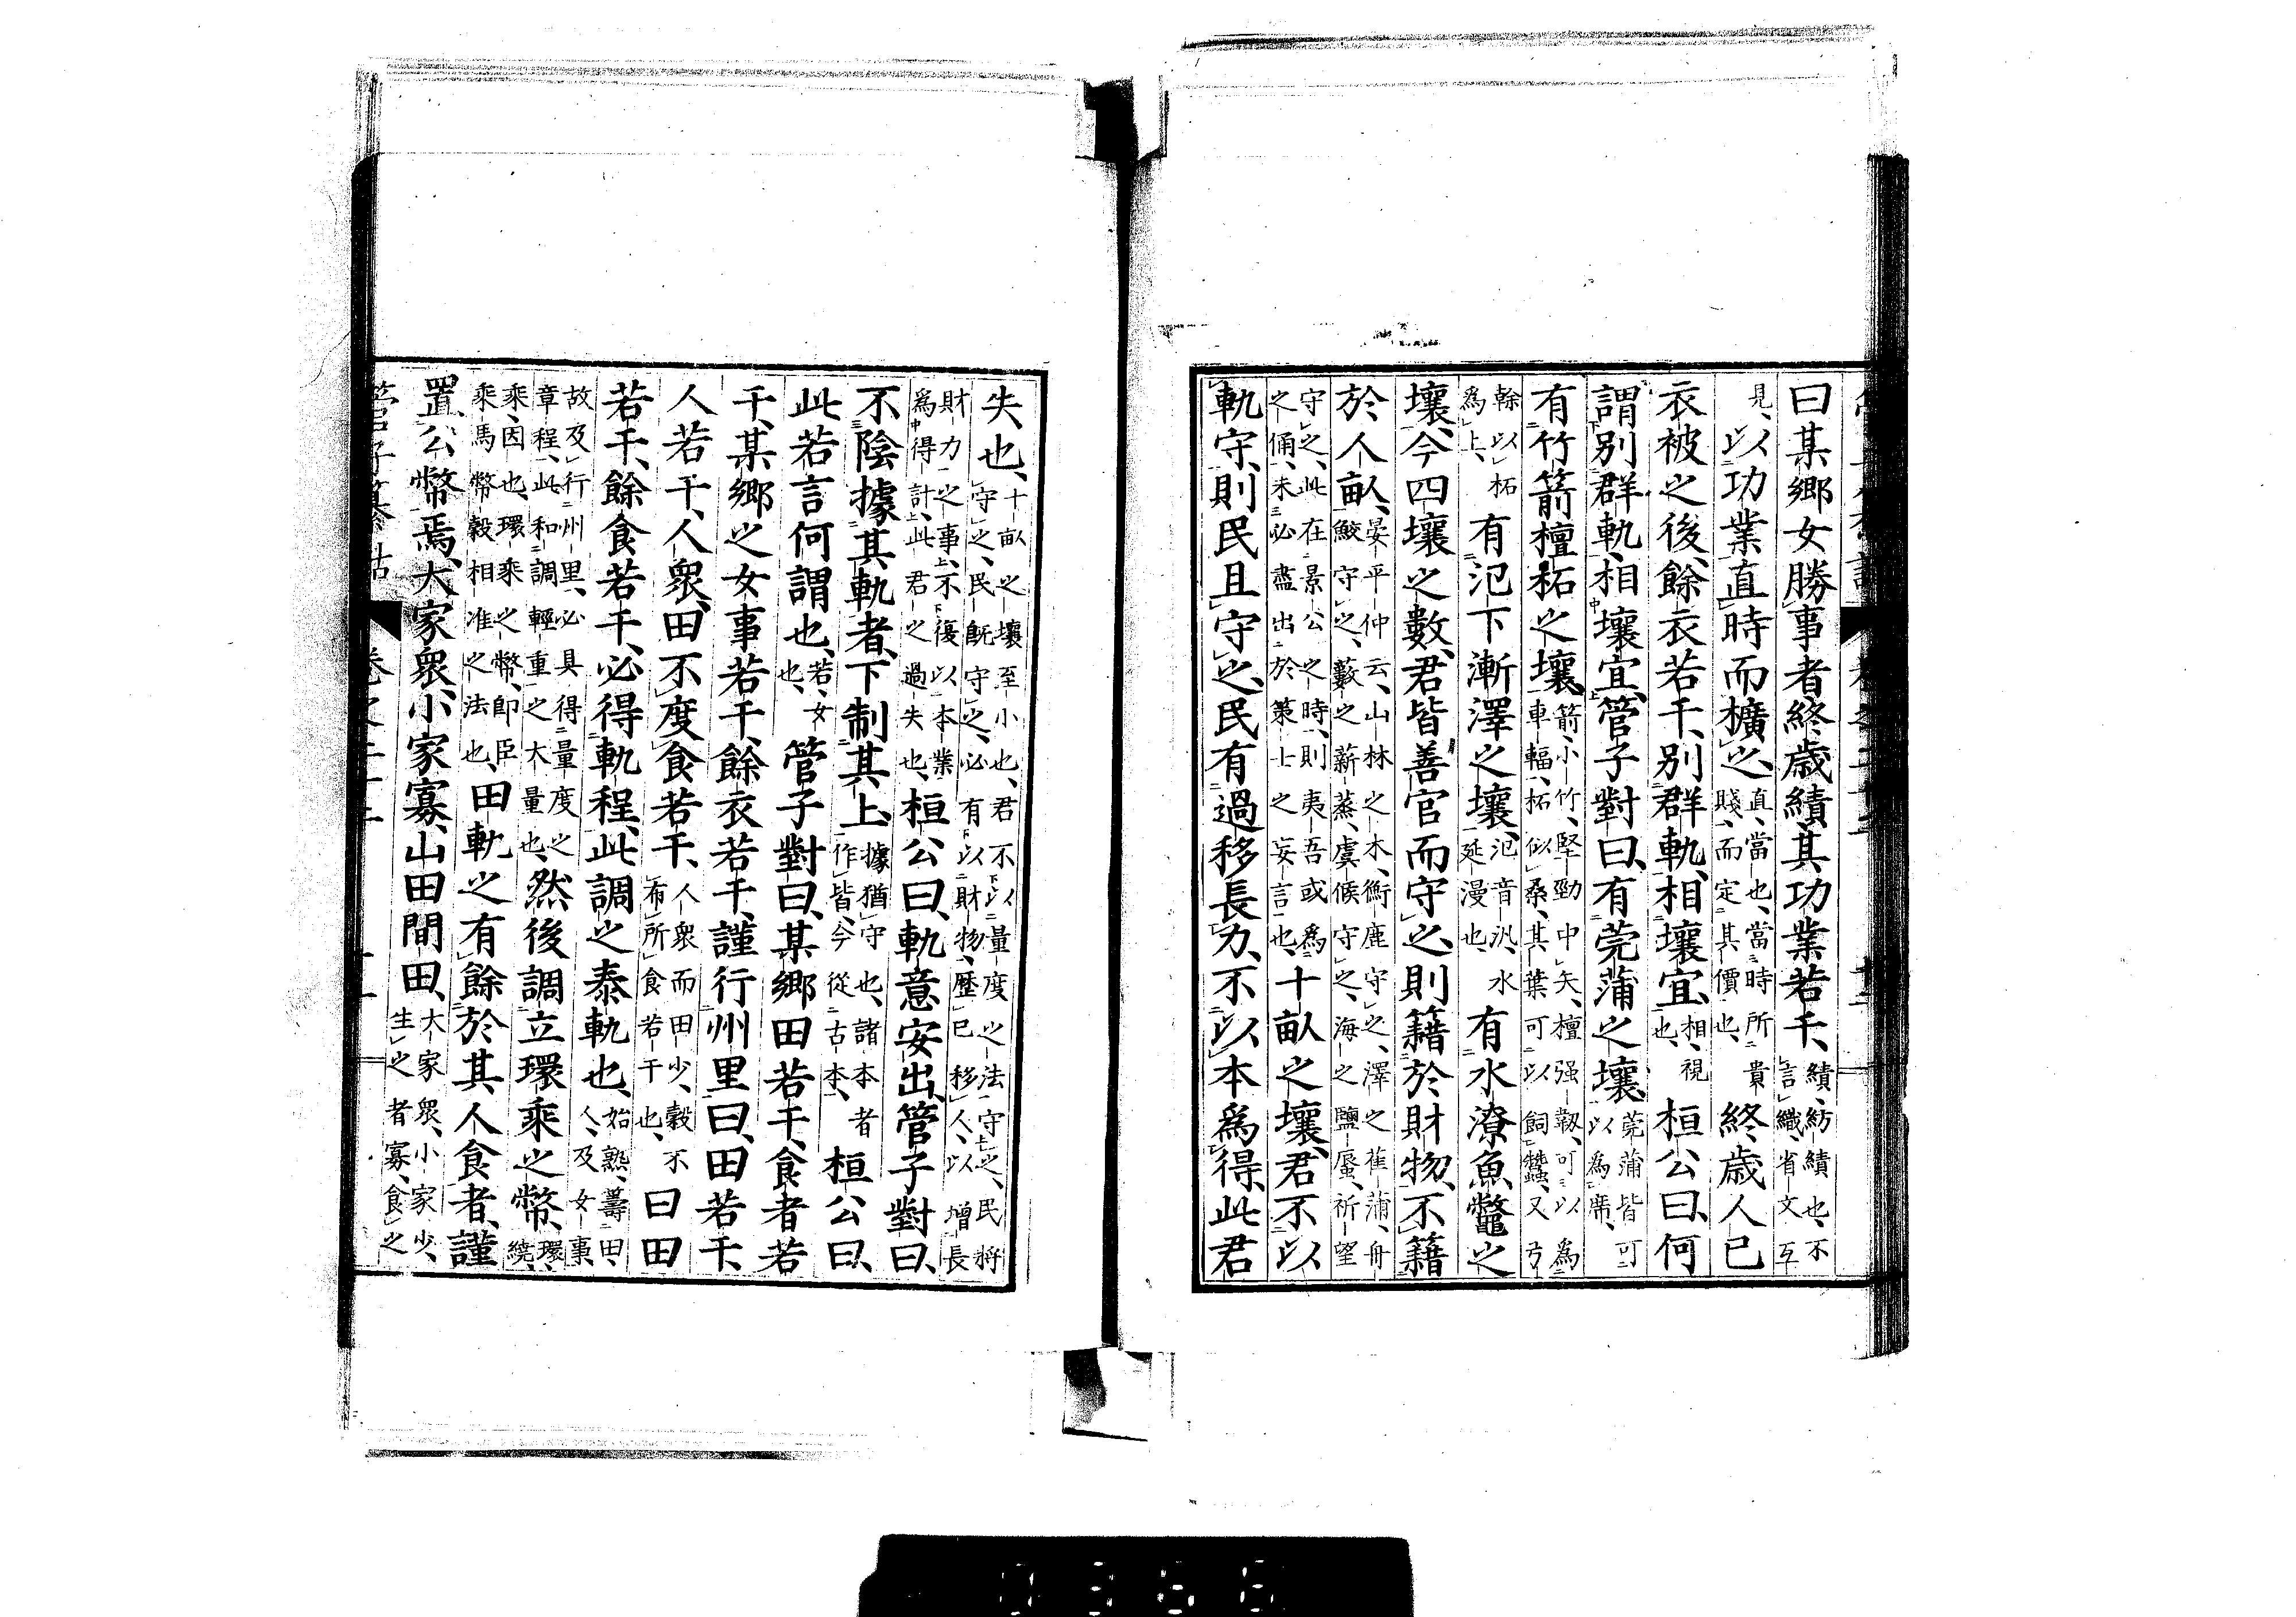 曰某鄉女勝事者終歲績其功業若干績紡績也不言織省文互
見以功業直時而㯋之直當也當時所貴賤而定其價也終歲人已
衣被之後餘衣若干別群軌相壤宜相視也桓公曰何
謂別群軌相壤宜管子對曰有莞蒲之壤莞蒲皆可以為席
有竹箭檀柘之壤箭小竹堅勁中矢檀强韌可以為車輻柘似桑其葉可以飼蠶又弓
榦以柘為上有氾下漸澤之壤氾音汎水延漫也有水潦魚鼈之
壤今四壤之數君皆善官而守之則籍於財物不籍
於人畝晏平仲云山林之木衡鹿守之澤之萑蒲舟鮫守之藪之薪蒸虞候守之海之鹽蜃祈望
守之此在景公之時則夷吾或為之俑未必盡出於策士之妄言也十畝之壤君不以
軌守則民且守之民有過移長力不以本為得此君
失也十畝之壤至小也君不以量度之法守之民將守之民旣守之必有以財物歷已移人以增長
財力之事不復以本業為得計此君之過失也桓公曰軌意安出管子對曰
不陰據其軌者下制其上據猶守也諸本者作皆今從古本桓公曰
此若言何謂也若女也管子對曰某鄉田若干食者若
干某鄉之女事若干餘衣若干謹行州里曰田若干
人若干人衆田不度食若干人衆而田少穀不布所食若干也曰田
若干餘食若干必得軌程此調之泰軌也始熟籌田人及女事
故及行州里必具得量度之章程此和調輕重之大量也然後調立環乘之幣環繞
乘因也環乘之幣即臣乘馬幣穀相准之法也田軌之有餘於其人食者謹
置公幣焉大家衆小家寡山田間田大家衆小家少生之者寡食之